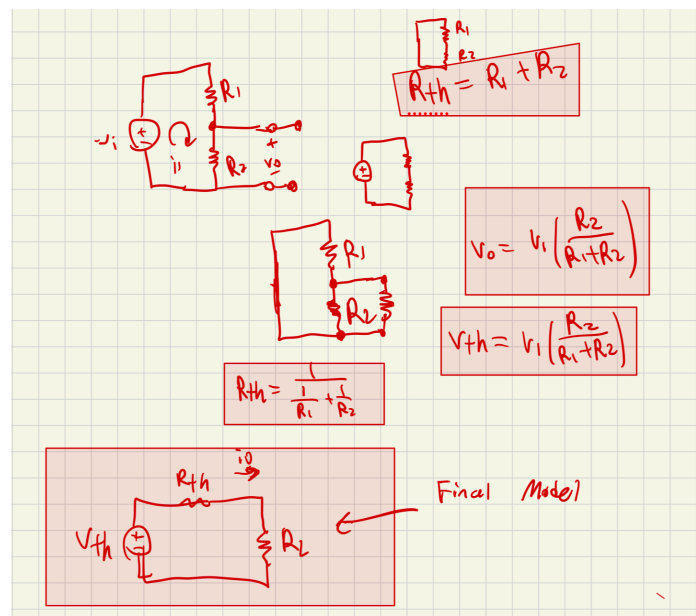 R1
R2
Rth = R1 + R2
R1
vi
i1
R2
+
vo
-
vo = v1 (R2 / (R1+R2))
R1
R2
Vth = v1 (R2 / (R1+R2))
Rth = 1 / (1/R1 + 1/R2)
io
Rth
Vth
RL
Final Model